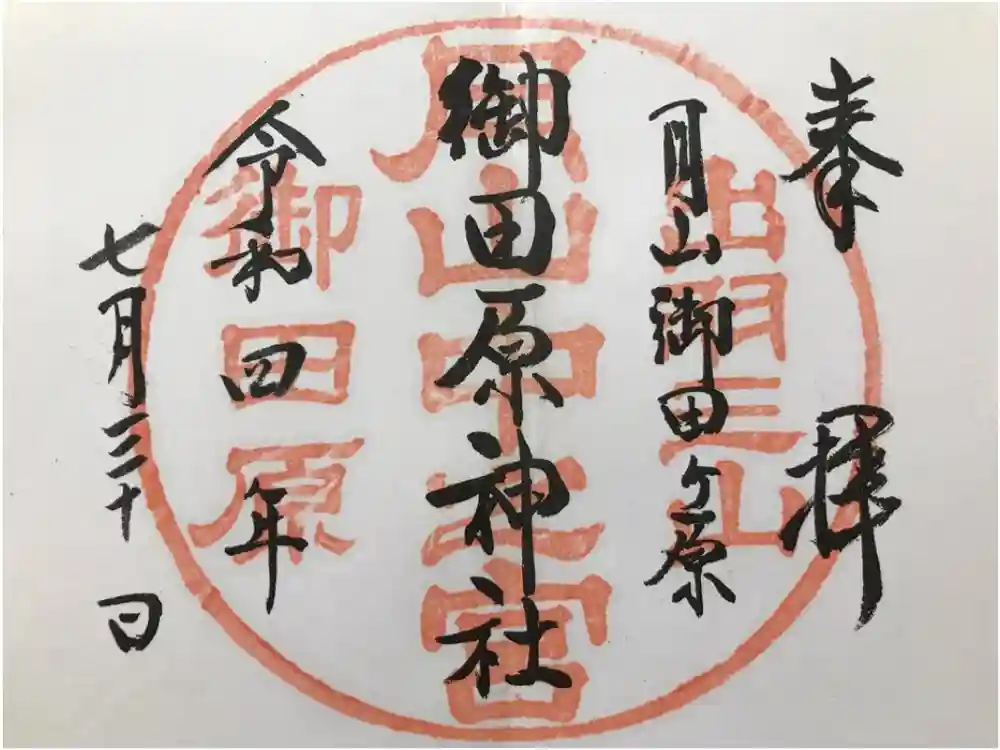 奉拝
月山御田ヶ原
御田原神社
令和四年
七月三十日
出羽三山
月山中之宮
御田原